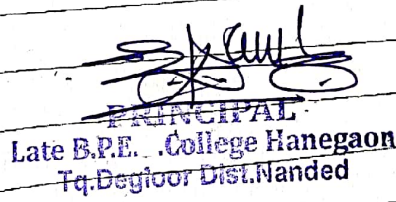 PRINCIPAL
Late B.P.E. .College Hanegaon
Tq.Degloor Dist.Nanded